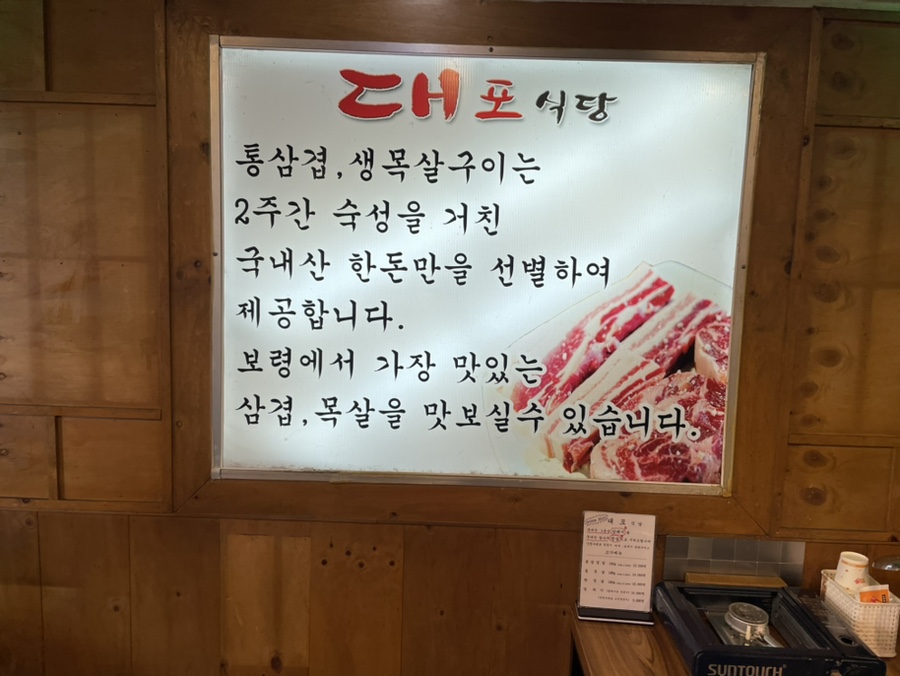 대포식당
통삼겹,생목살구이는
2주간 숙성을 거친
국내산 한돈만을 선별하여
제공합니다.
보령에서 가장 맛있는
삼겹,목살을 맛보실수 있습니다.
대포식당
SUNTOUCH